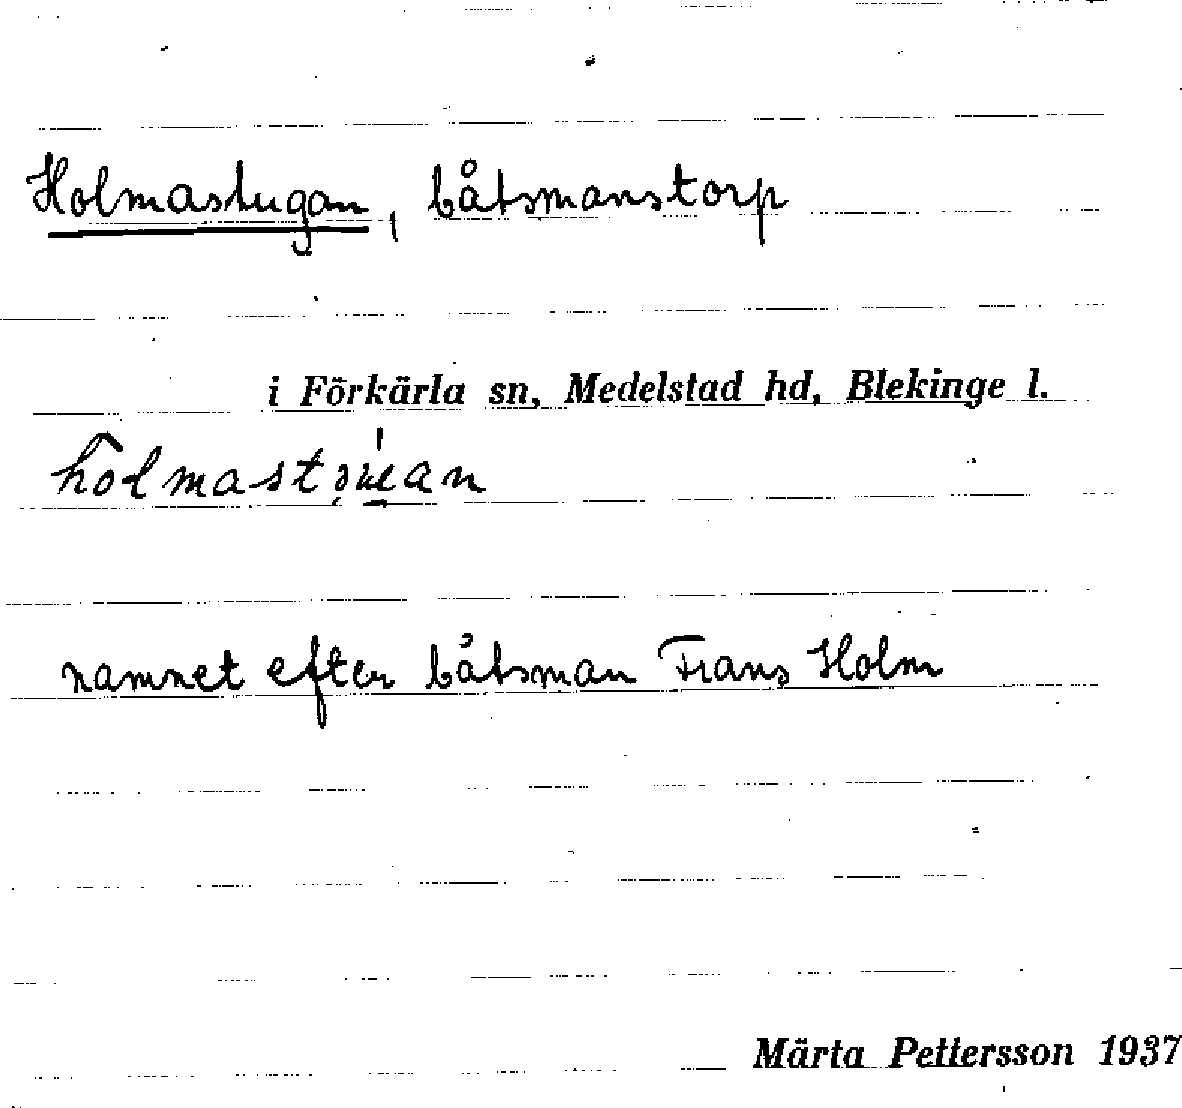 Holmastugan, båtsmanstorp
i Förkärla sn, Medelstad hd, Blekinge l.
namnet efter båtsman Frans Holm
Märta Pettersson 1937